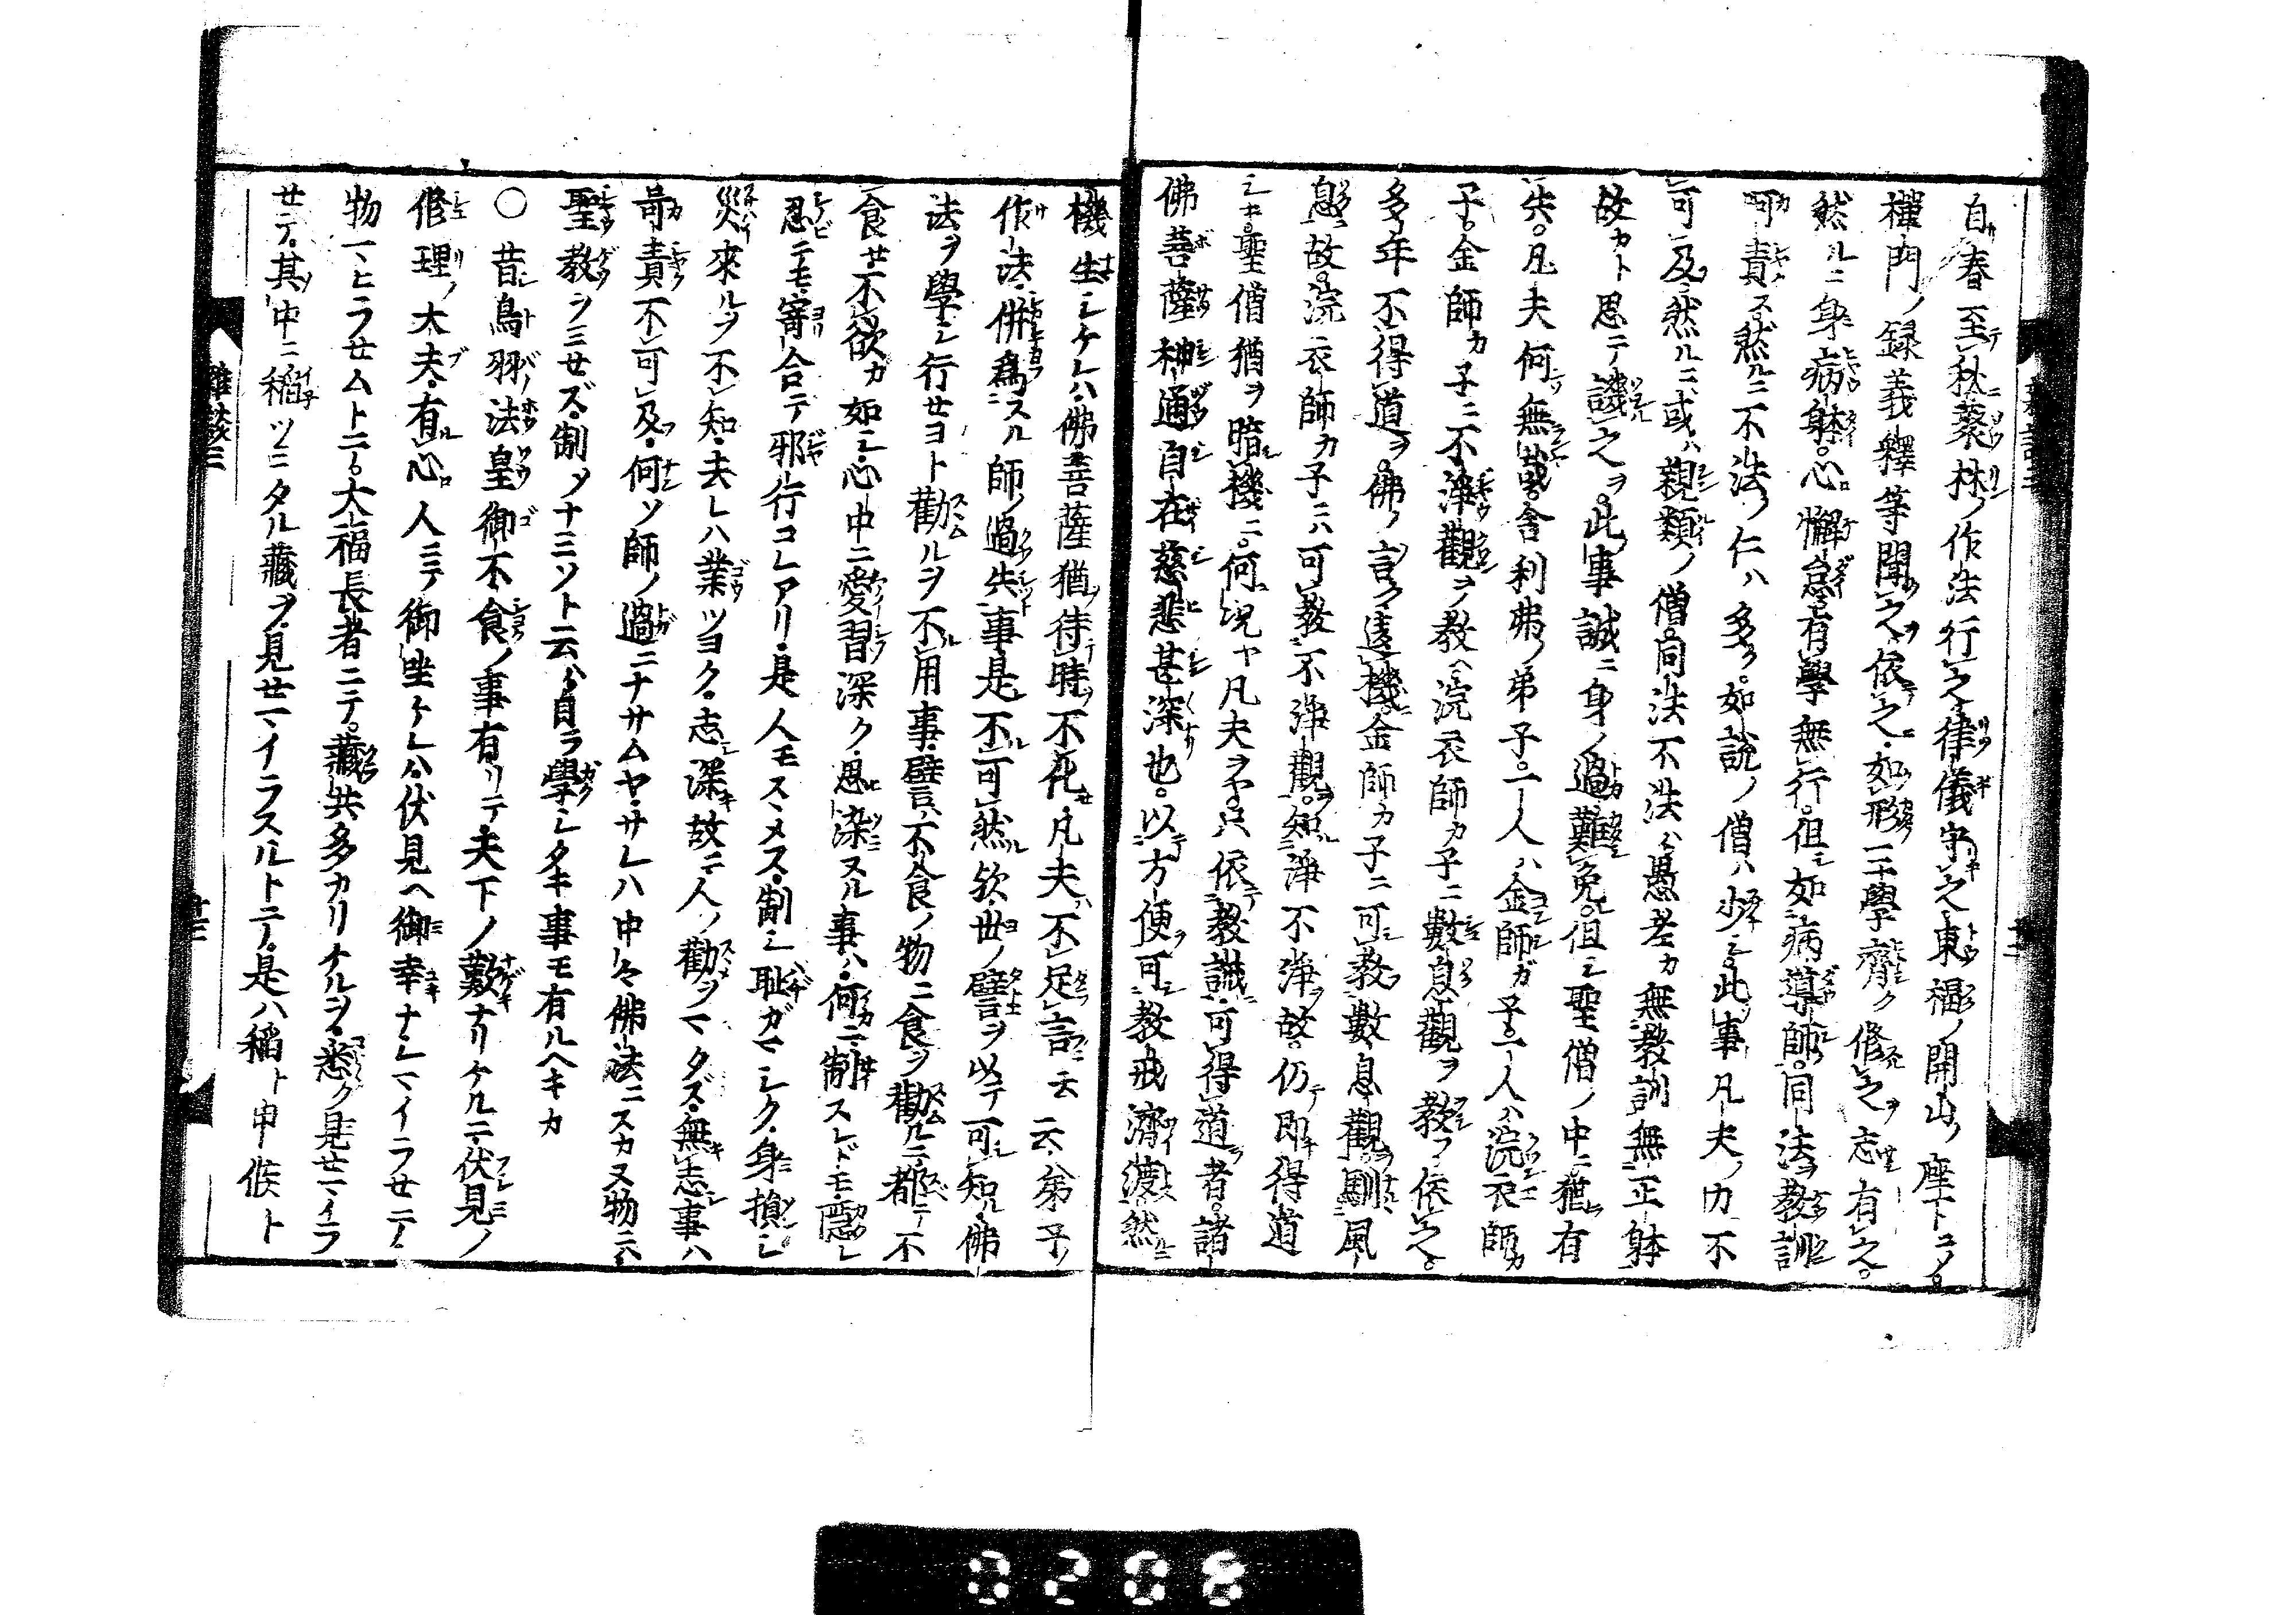 自春至秋叢林ノ作法行之律儀守之東福ノ開山ノ座下ニノ。
禪門ノ録義釋等聞之ヲ依之如形三學齊ク修之ヲ志有之。
然ルニ身病躰。心懈怠有學無行。但如病導師。同法ヲ教訓
呵責ス。然ルニ不法ノ仁ハ多ク。如説ノ僧ハ少シ。此事凡夫ノ力不
可及然ルニ或ハ親類ノ僧同法不法ハ愚老カ無教訓無正躰
故カト思テ譏之ヲ。此事誠ニ身ノ過難免。但シ聖僧ノ中ニ猶有
失。凡夫何無哉。舎利弗ノ弟子。一人ハ金師ガ子。一人ハ浣衣師カ
子。金師カ子ニ不淨觀ヲ教ヘ浣衣師カ子ニ數息觀ヲ教フ依之。
多年不得道ヲ。佛ノ言ク違機金師カ子ニ可教數息觀馴風
息故。浣衣師カ子ニハ可教不淨觀。知淨不淨故。仍即得道
シキ。聖僧猶ヲ暗機ニ。何況ヤ凡夫ヲヤ只依教誡可得道者。諸
佛菩薩神通自在慈悲甚深也。以方便可教戒濟渡然
機生シケレハ佛菩薩猶待時不化凡夫不足言云云弟子ノ
作法併爲スル師ノ過失事是不可然欤世ノ譬ヲ以テ可知佛
法ヲ學シ行セヨト勸ルヲ不用事譬ハ不食ノ物ニ食ヲ勸ルニ都テ不
食セ不欲カ如シ心中ニ愛習深ク思染スル事ハ何ニ制スレドモ隱レ
忍ニモ寄合テ邪行コレアリ是人モスヽメス制シ耻ガマシク身損シ
災來ルヲ不知夫レハ業ツヨク志深故ニ人ノ勸ヲマタズ無志事ハ
呵責不可及何ソ師ノ過ニナサムヤサレハ中々佛法ニスカヌ物ニハ
聖教シミセズ制メナミソト云ハ自ラ學シタキ事モ有ルヘキカ
○昔鳥羽ノ法皇御不食ノ事有リテ天下ノ歎ナリケルニ伏見ノ
修理ノ大夫有心人ミテ御坐ケレハ伏見ヘ御幸ナレマイラセテ
物マヒラセムトテ。大福長者ニテ。藏共多カリケルヲ悉ク見せマイラ
せテ其中ニ稲ツミタル藏ヲ見せマイラスルトテ是ハ稲ト申候ト
雜談三
十三